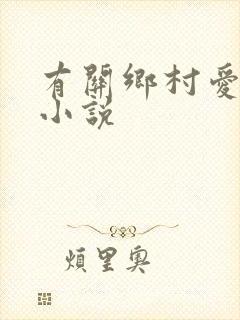 有關鄉村愛
小說
煩里奧